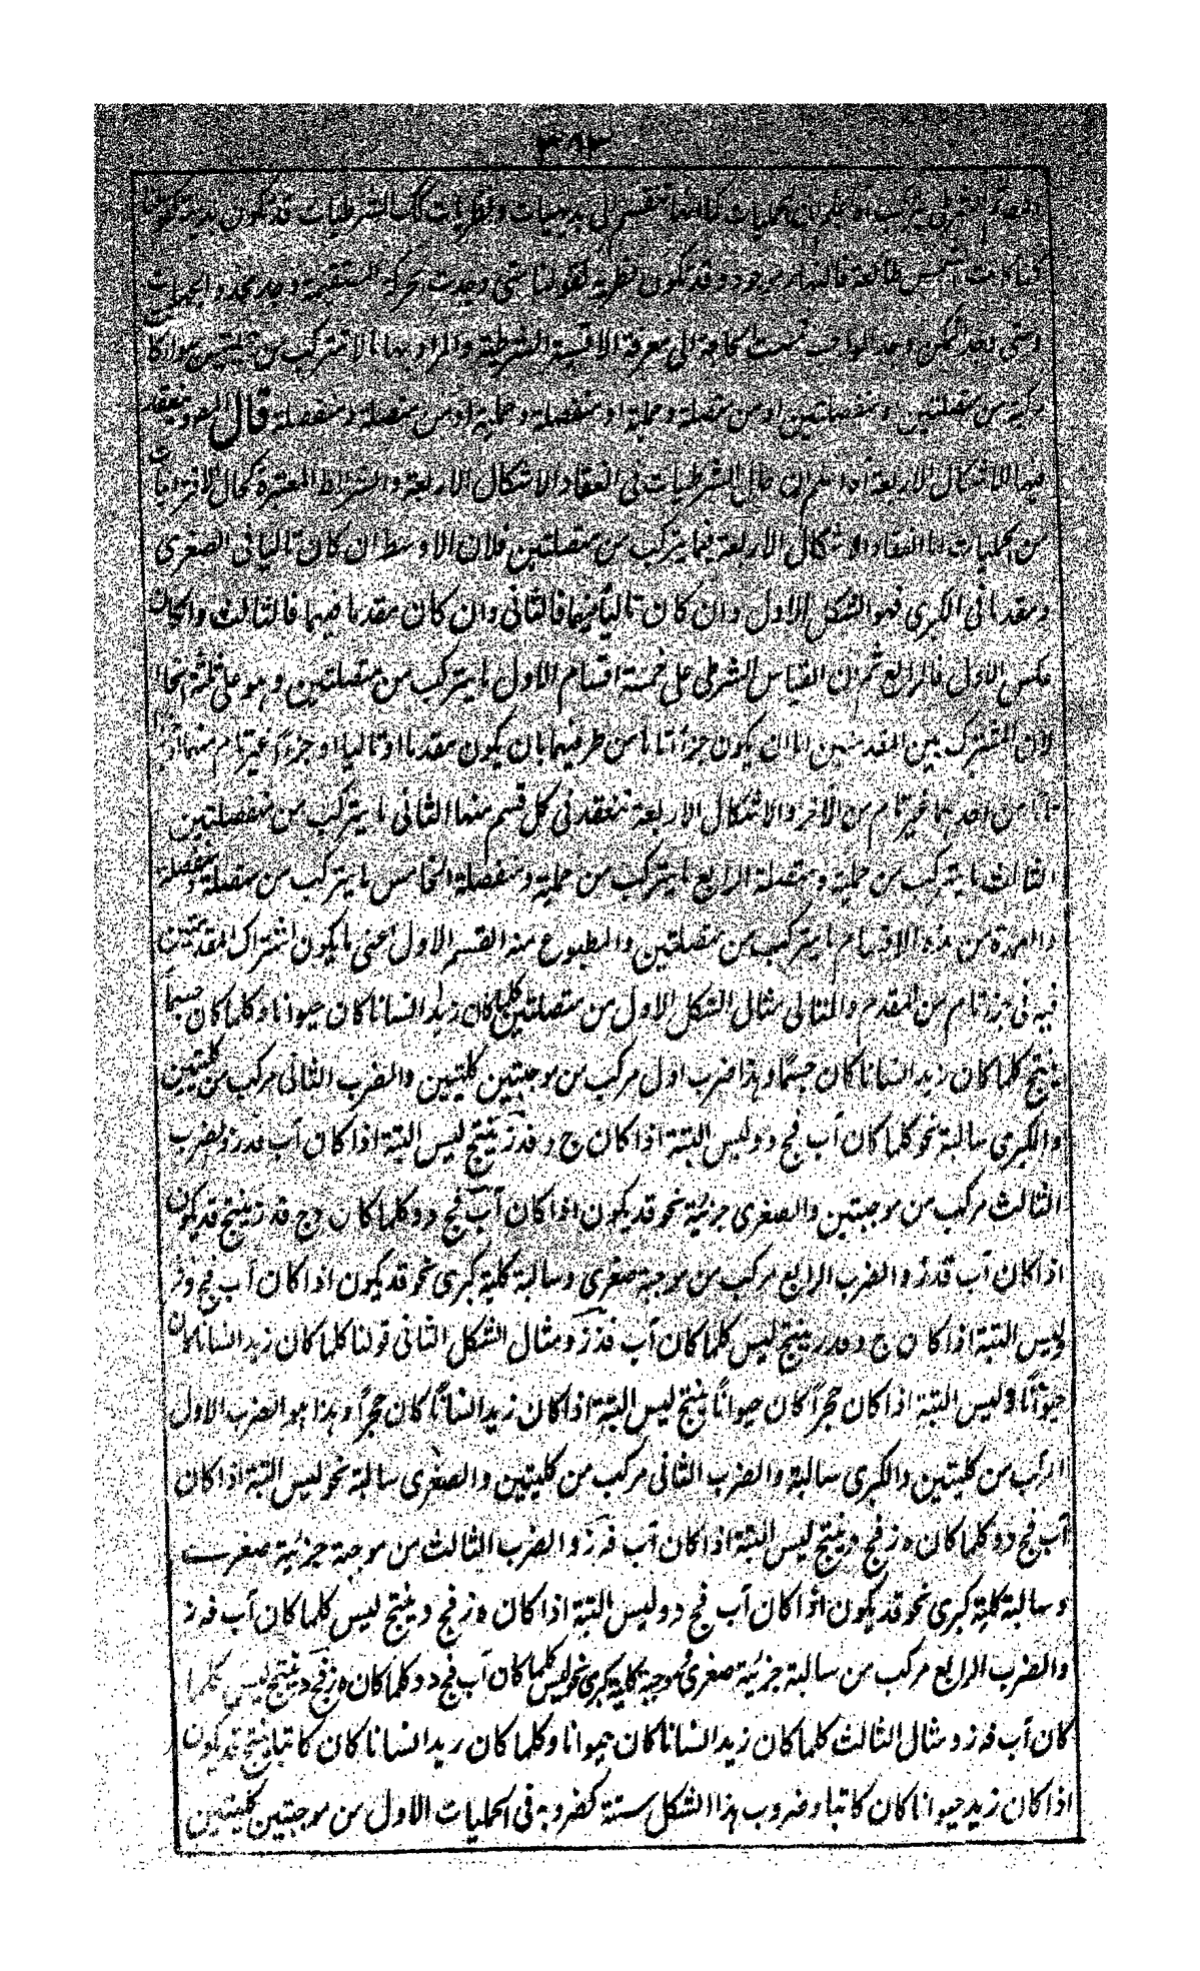 ٣٨٣
ان الحمليات كما انها تنقسم الى بديهيات ونظريات كك الشرطيات قد تكون بديهية كقولنا
كلما كانت الشمس طالعة فالنهار موجود وقد تكون نظرية كقولنا متى وجدت الحركة المستقيمة وجد محدد الجهات
ومتى وجد الممكن وجد الواجب فمست الحاجة الى معرفة الاقيسة الشرطية والمراد بها ما لا تتركب من حمليتين سواء كا
مركبة من متصلتين و منفصلتين او من متصلة وحملية او منفصلة وحملية او من متصلة ومنفصلة قال المص وينعقد
فيها الاشكال الاربعة اه اعلم ان حال الشرطيات فى انعقاد الاشكال الاربعة والشرائط المعتبرة كحال الاقترانيات
من الحمليات اما انعقاد الاشكال الاربعة فيما يتركب من متصلتين فلان الاوسط ان كان تاليا فى الصغرى
ومقدما فى الكبرى فهو الشكل الاول وان كان تاليا فيهما فالثانى وان كان مقدما فيهما فالثالث وان كان
عكس الاول فالرابع ثم ان القياس الشرطى على خمسة اقسام الاول ما يتركب من متصلتين وهو على ثلثة انحاء
لان المشترك بين المقدمتين اما ان يكون جزءا تاما من طرفيهما بان يكون مقدما او تاليا او جزءا غير تام منهما او جزءا
تاما من احدهما غير تام من الآخر والاشكال الاربعة تنعقد فى كل قسم منها الثانى ما يتركب من منفصلتين
الثالث ما يتركب من حملية ومتصلة الرابع ما يتركب من حملية ومنفصلة الخامس ما يتركب من متصلة ومنفصلة
والعمدة من هذه الاقسام ما يتركب من متصلتين والمطبوع منه القسم الاول اعنى ما يكون اشتراك المقدمتين
فيه فى جزء تام من المقدم والتالى مثال الشكل الاول من متصلتين كلما كان زيد انسانا كان حيوانا وكلما كان جسما
ينتج كلما كان زيد انسانا كان جسما وهذا ضرب اول مركب من موجبتين كليتين والضرب الثانى مركب من كليتين
والكبرى سالبة نحو كلما كان آب فج د وليس البتة اذا كان ج د فه ز ينتج ليس البتة اذا كان آب فه ز والضرب
الثالث مركب من موجبتين والصغرى جزئية نحو قد يكون اذا كان آب فج د وكلما كان ج د فه ز ينتج قد يكون
اذا كان آب فه ز والضرب الرابع مركب من موجبة صغرى وسالبة كلية كبرى نحو قد يكون اذا كان آب فج د
وليس البتة اذا كان ج د فه ز ينتج ليس كلما كان آب فه ز ومثال الشكل الثانى قولنا كلما كان زيد انسانا كان
حيوانا وليس البتة اذا كان حجرا كان حيوانا ينتج ليس البتة اذا كان زيد انسانا كان حجرا وهذا هو الضرب الاول
المركب من كليتين والكبرى سالبة والضرب الثانى مركب من كليتين والصغرى سالبة نحو ليس البتة اذا كان
آب فج د وكلما كان ه ز فج د ينتج ليس البتة اذا كان آب فه ز والضرب الثالث من موجبة جزئية صغرى
وسالبة كلية كبرى نحو قد يكون اذا كان آب فج د وليس البتة اذا كان ه ز فج د ينتج ليس كلما كان آب فه ز
والضرب الرابع مركب من سالبة جزئية صغرى وموجبة كلية كبرى نحو ليس كلما كان آب فج د وكلما كان ه ز فج د ينتج ليس كلما
كان آب فه ز ومثال الثالث كلما كان زيد انسانا كان حيوانا وكلما كان زيد انسانا كان كاتبا ينتج قد يكون
اذا كان زيد حيوانا كان كاتبا وضروب هذا الشكل ستة كضروبه فى الحمليات الاول من موجبتين كليتين